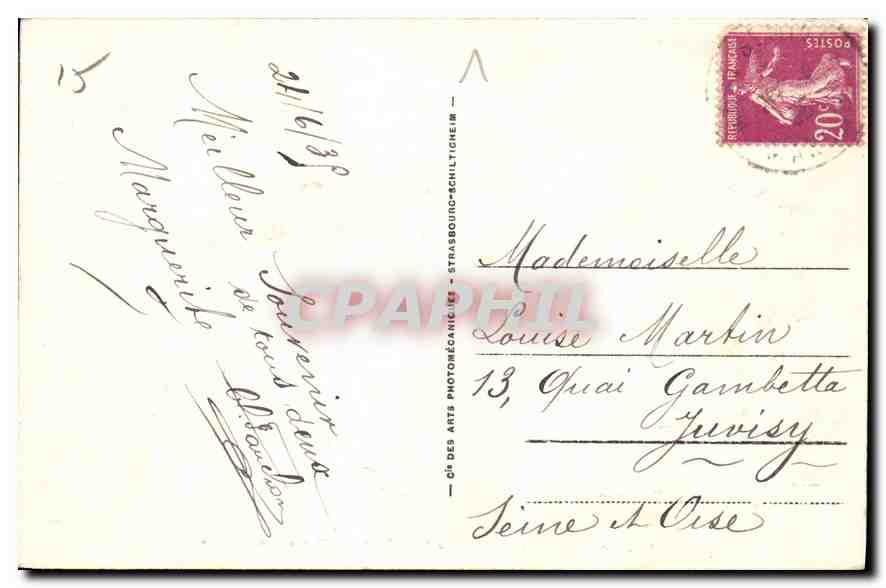 15
27/6/35
Meilleur Souvenir
de tous deux
Marguerite
Cie DES ARTS PHOTOMÉCANIQUES - STRASBOURG-SCHILTIGHEIM
RÉPUBLIQUE FRANÇAISE
POSTES
20c
Mademoiselle
Louise Martin
13, Quai Gambetta
Juvisy
Seine et Oise
CPAPHIL